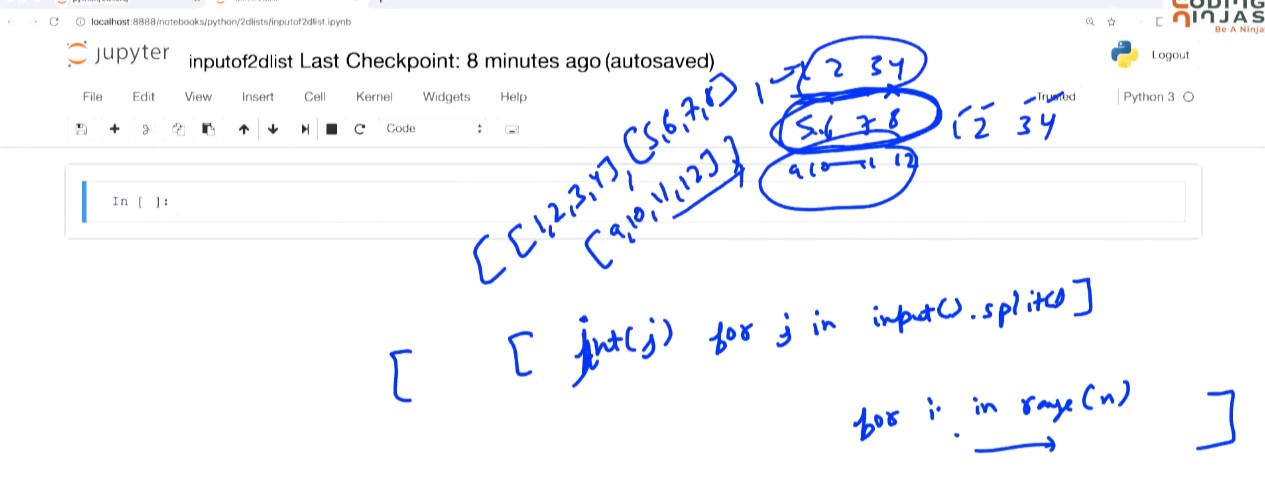 localhost:8888/notebooks/python/2dlists/inputof2dlist.ipynb
CODING
NINJAS
Be A Ninja
jupyter inputof2dlist Last Checkpoint: 8 minutes ago (autosaved)
Logout
File Edit View Insert Cell Kernel Widgets Help
Trusted
Python 3
Code
In [ ]:
1 2 3 4
5 6 7 8
9 10 11 12
1 2 3 4
[[1,2,3,4],[5,6,7,8]
[9,10,11,12]]
[ [ int(j) for j in input().split()]
for i in range(n) ]